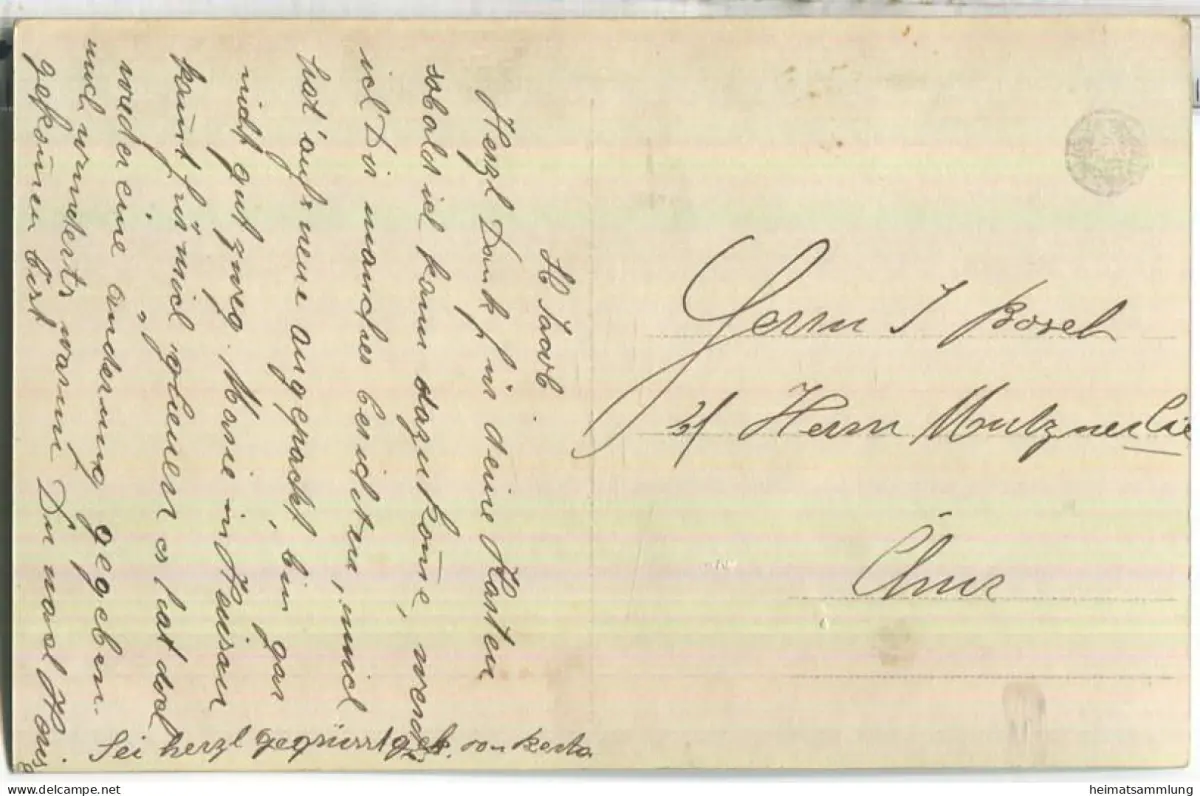 H Jacob
Herzl Dank für deine Karten
sobald ich kann dazu kom̄e, werde
ich Dir manches berichten, mich
hat's aufs neue angepackt bin gar
nicht gut zweg. Marie in Herisau
kaum̄t für mich es hat doch
wieder eine anderung gegeben.
mich wunderts warum Du nach
gekom̄en bist
Sei herzl gegrüsst von
Herrn J Bosch
b/ Herrn Mutzner
Chur
heimatsammlung.com